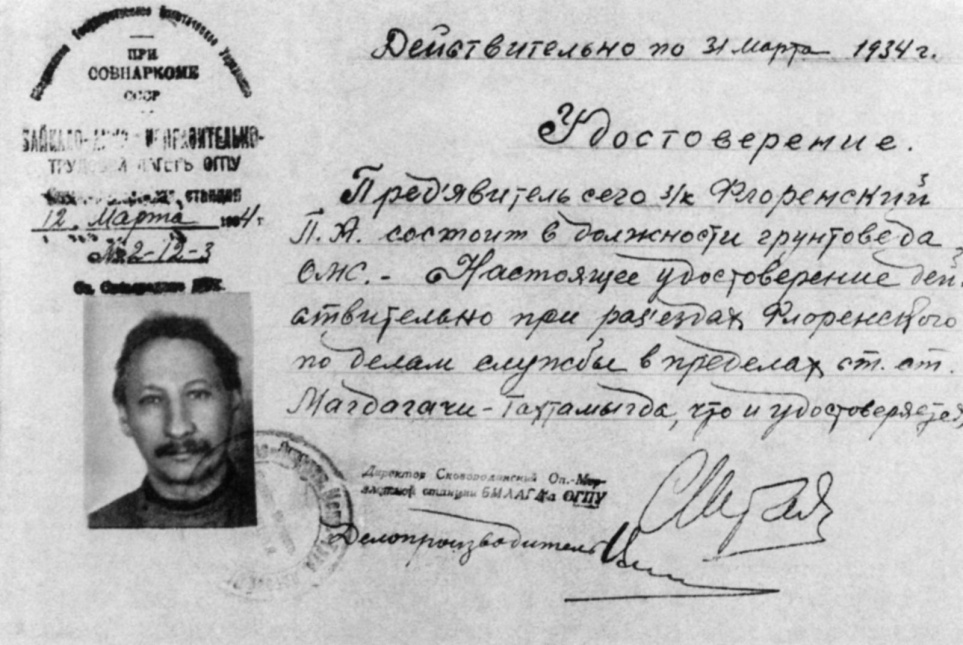 Объединенное Государственное Политическое Управление
ПРИ
СОВНАРКОМЕ
СССР
БАЙКАЛО-АМУР. ИСПРАВИТЕЛЬНО-
ТРУДОВОЙ ЛАГЕРЬ ОГПУ
станция
12. Марта 1934 г
№ 2-12-3
Ст. Сковородино
Действительно по 31 марта 1934 г.
Удостоверение.
Пред'явитель сего з/к Флоренский
П. А. состоит в должности грунтоведа
ОМС. - Настоящее удостоверение дей-
ствительно при раз'ездах Флоренского
по делам службы в пределах ст. ст.
Магдагачи - Тахтамыгда, что и удостоверяется
Директор Сковородинской Оп.-Мер-
злотной станции БМЛАГ'а ОГПУ
Делопроизводитель